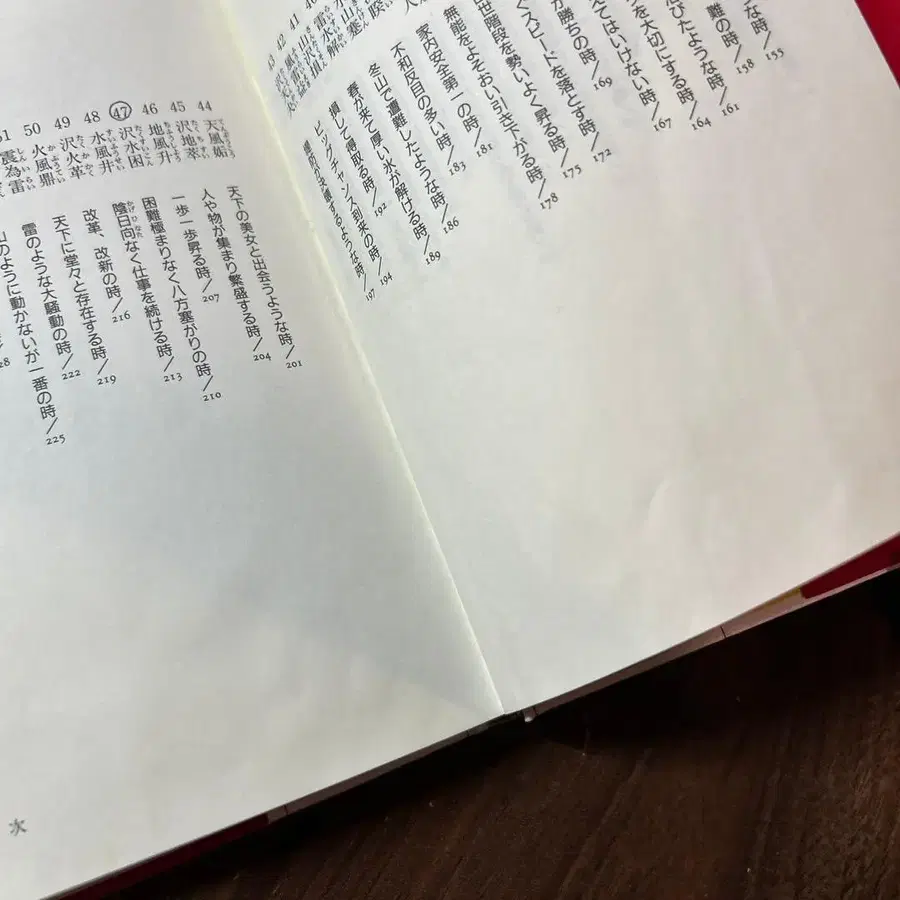 な時/155
難の時/158
びたような時/161
を大切にする時/164
えてはいけない時/167
が勝ちの時/169
スピードを落とす時/172
世階段を勢いよく昇る時/175
無能をよそおい引き下がる時/178
家内安全第一の時/181
不和反目の多い時/183
冬山で遭難したような時/186
41 春が来て厚い氷が解ける時/189
42 損して得取る時/192
43 ビッグチャンス到来の時/194
時/197
44 天風姤 天下の美女と出会うような時/201
45 沢地萃 人や物が集まり繁盛する時/204
46 地風升 一歩一歩昇る時/207
㊼ 沢水困 困難極まりなく八方塞がりの時/210
48 水風井 陰日向なく仕事を続ける時/213
49 沢火革 改革、改新の時/216
50 火風鼎 天下に堂々と存在する時/219
51 震為雷 雷のような大騒動の時/222
山のように動かないが一番の時/225
次